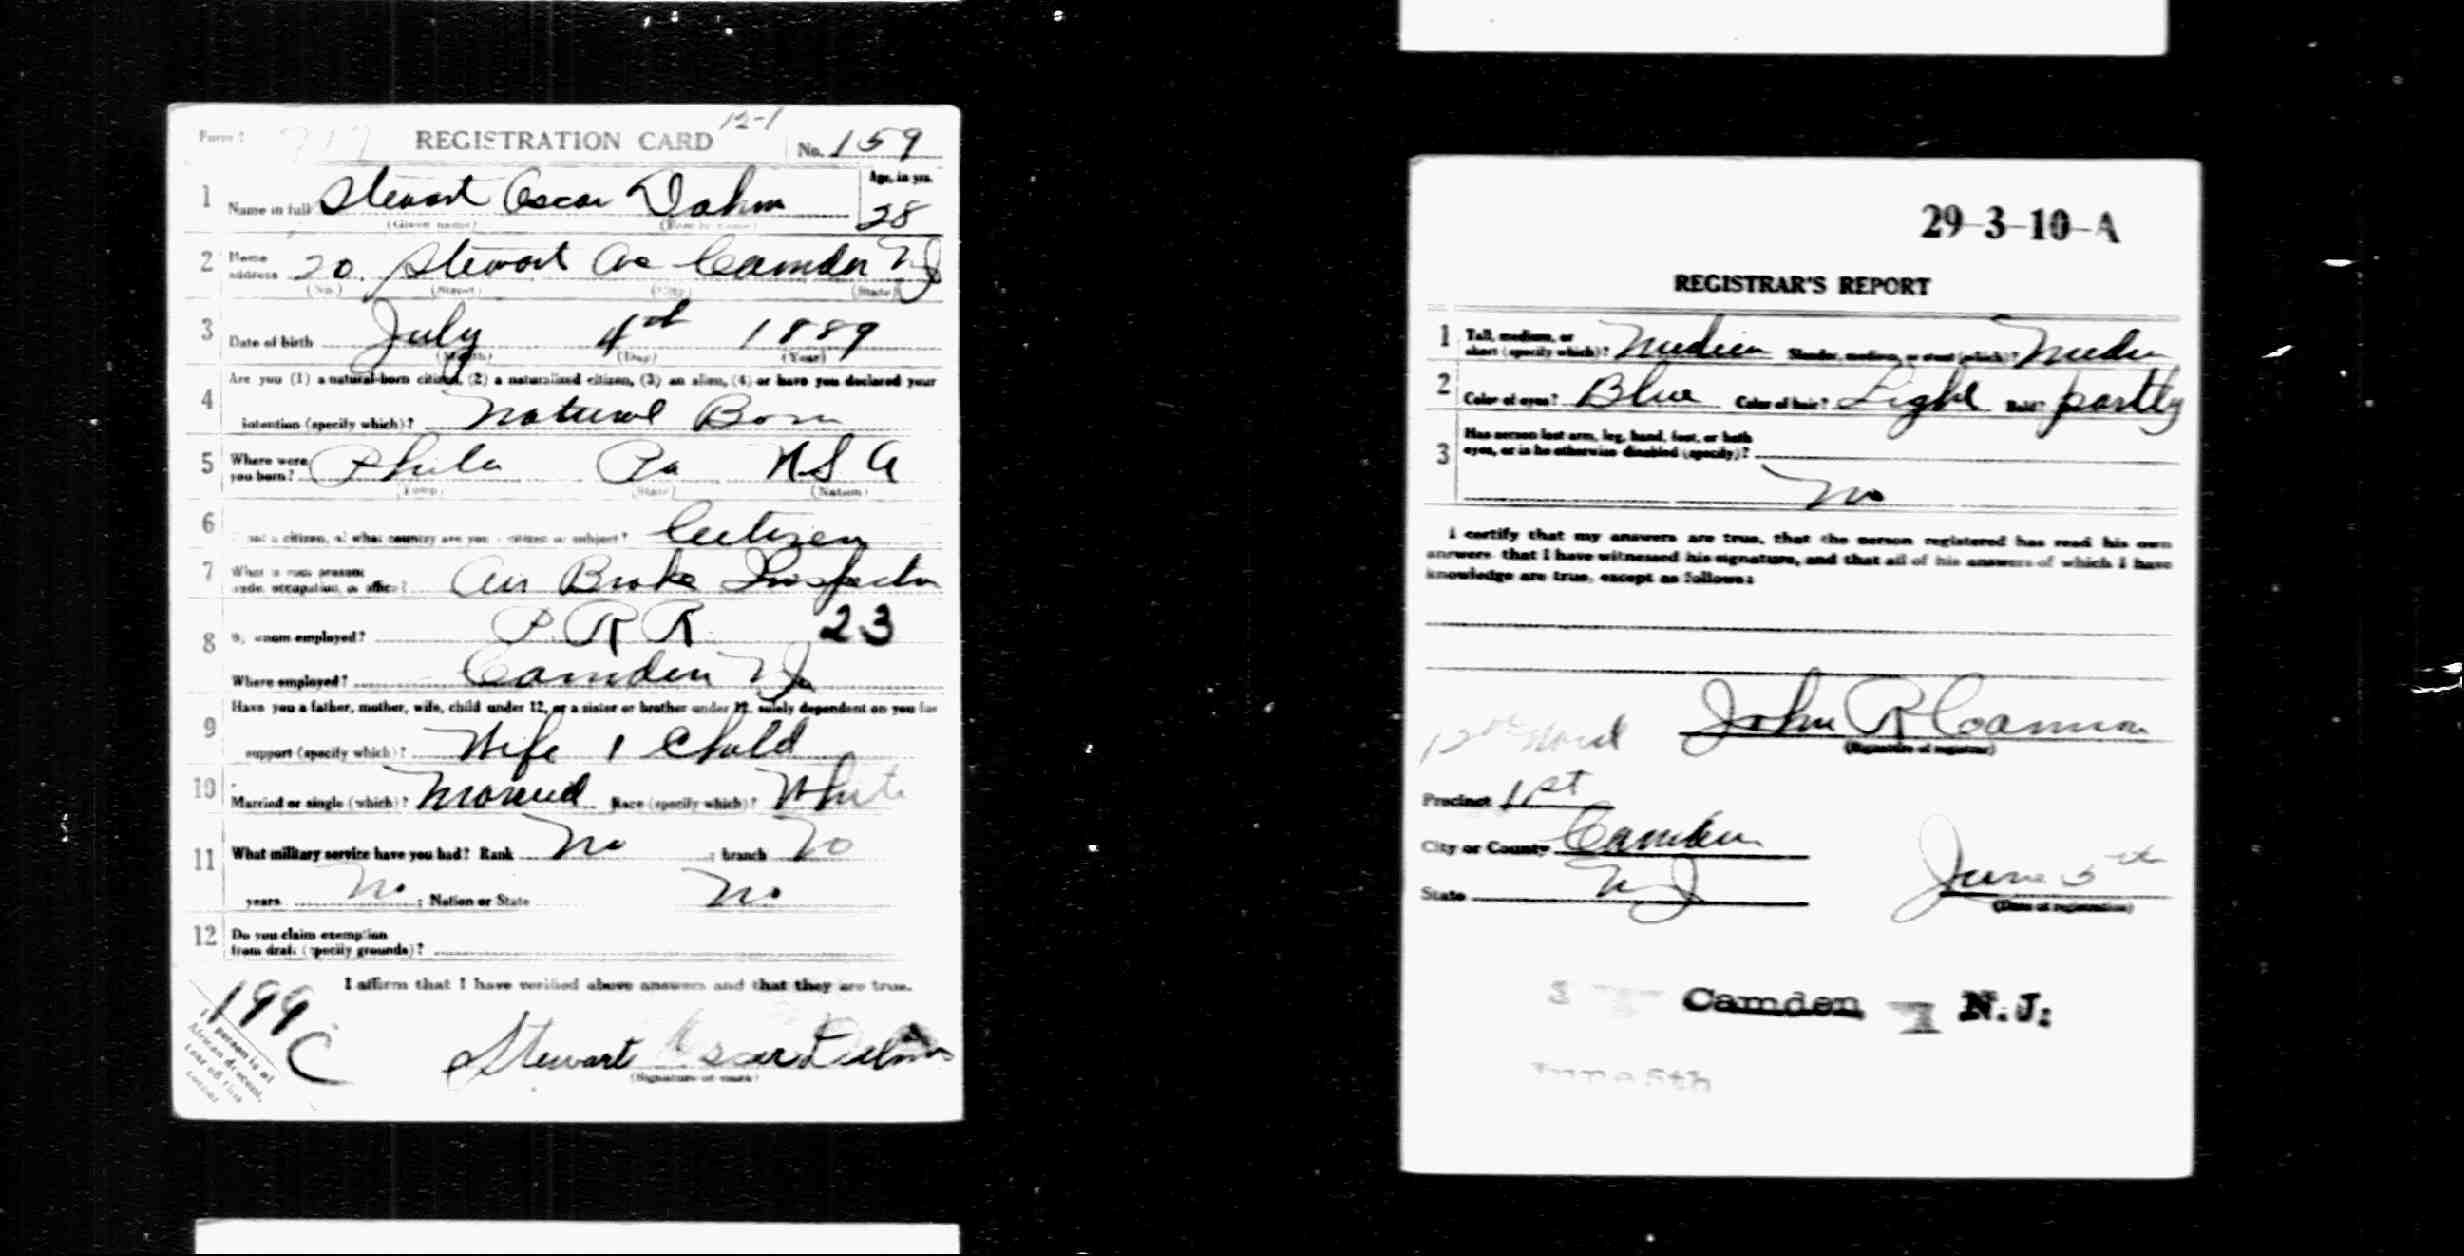 Form 1 REGISTRATION CARD 12-1 No. 159
1 Name in full Stewart Oscar Dahm Age, in yrs. 28
(Given name) (Family name)
2 Home address 20. Stewart Ave Camden NJ
(No.) (Street) (City) (State)
3 Date of birth July 4th 1889
(Month) (Day) (Year)
4 Are you (1) a natural-born citizen, (2) a naturalized citizen, (3) an alien, (4) or have you declared your
intention (specify which)? Natural Born
5 Where were you born? Phila Pa U S A
(Town) (State) (Nation)
6 not a citizen, of what country are you a citizen or subject? Cittizen
7 What is your present trade, occupation, or office? Air Brake Inspector
8 By whom employed? P. R R. 23
Where employed? Camden NJ
9 Have you a father, mother, wife, child under 12, or a sister or brother under 12, solely dependent on you for
support (specify which)? Wife 1 Child
10 Married or single (which)? Married Race (specify which)? White
11 What military service have you had? Rank No ; branch No
years No ; Nation or State No
12 Do you claim exemption
from draft (specify grounds)?
I affirm that I have verified above answers and that they are true.
199 C
If person is of
African descent,
tear off this
corner
Stewart Oscar Dahm
(Signature or mark)
29-3-10-A
REGISTRAR'S REPORT
1 Tall, medium, or short (specify which)? Medium Slender, medium, or stout (which)? Medin
2 Color of eyes? Blue Color of hair? Light Bald? partly
3 Has person lost arm, leg, hand, foot, or both
eyes, or is he otherwise disabled (specify)?
No
I certify that my answers are true, that the person registered has read his own
answers, that I have witnessed his signature, and that all of his answers of which I have
knowledge are true, except as follows:
John R
(Signature of registrar)
12th Ward
Precinct 1st
City or County Camden
State N J June 5th
(Date of registration)
Camden N.J:
June 5th